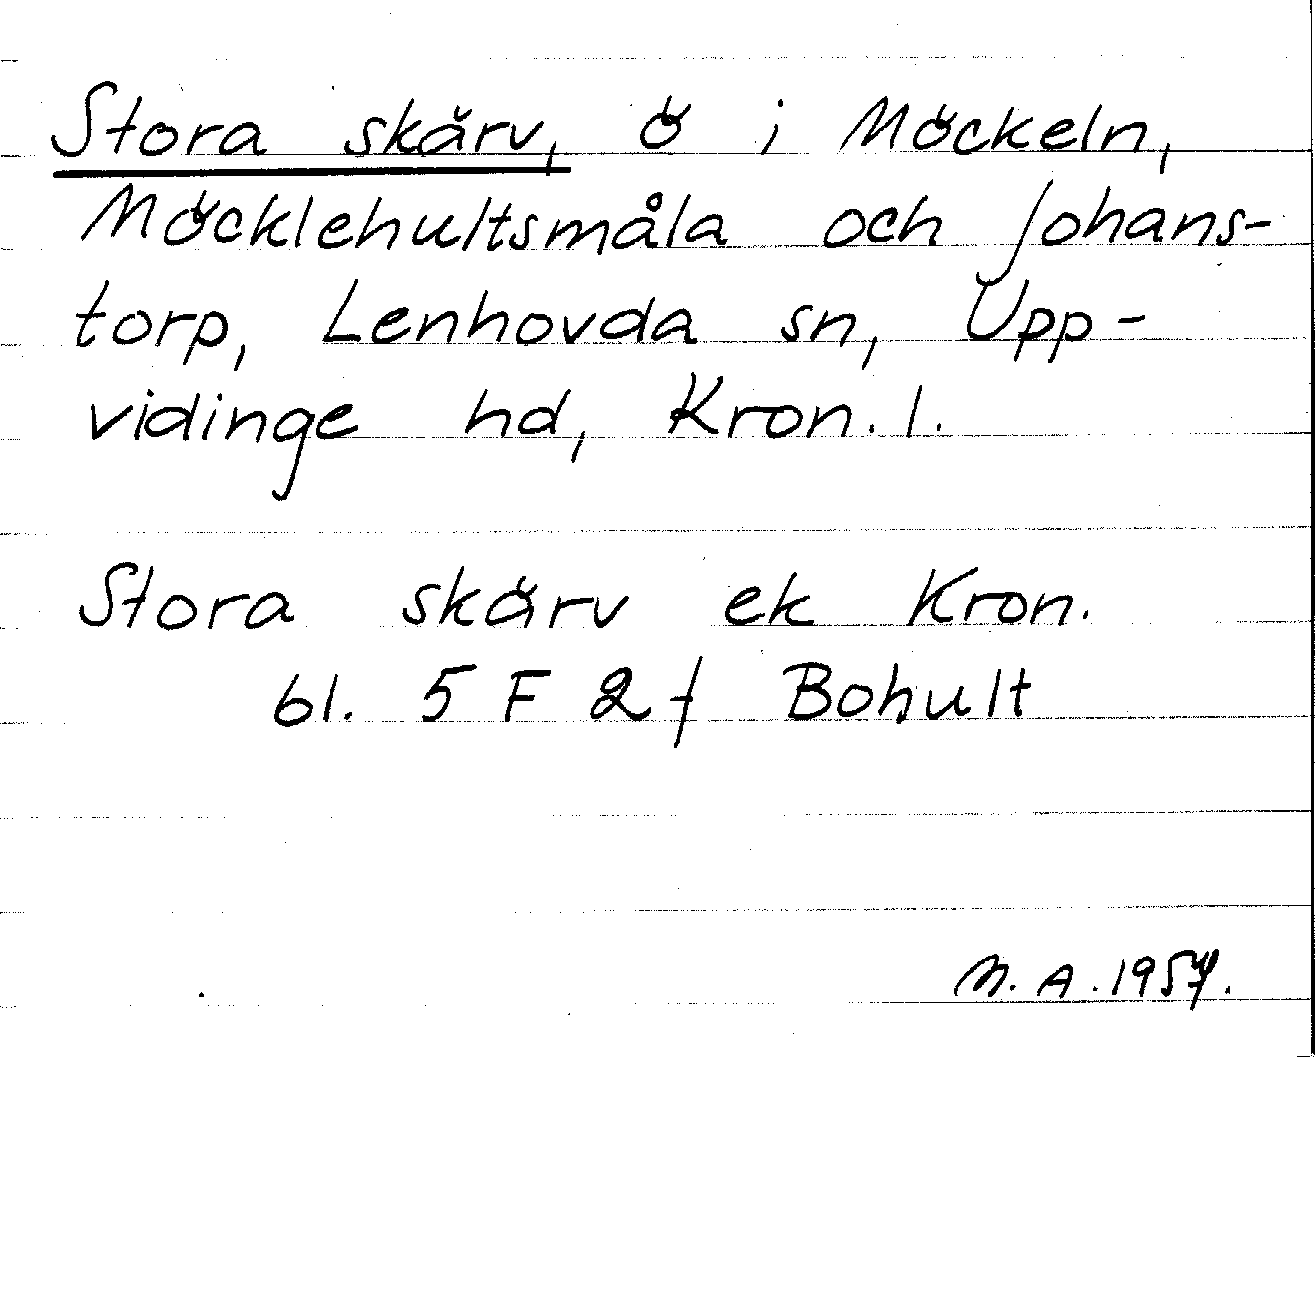 Stora skärv, ö i Möckeln,
Möcklehultsmåla och Johans-
torp, Lenhovda sn, Upp-
vidinge hd, Kron. l.
Stora skärv ek Kron.
bl. 5 F 2 f Bohult
M. A. 1957.